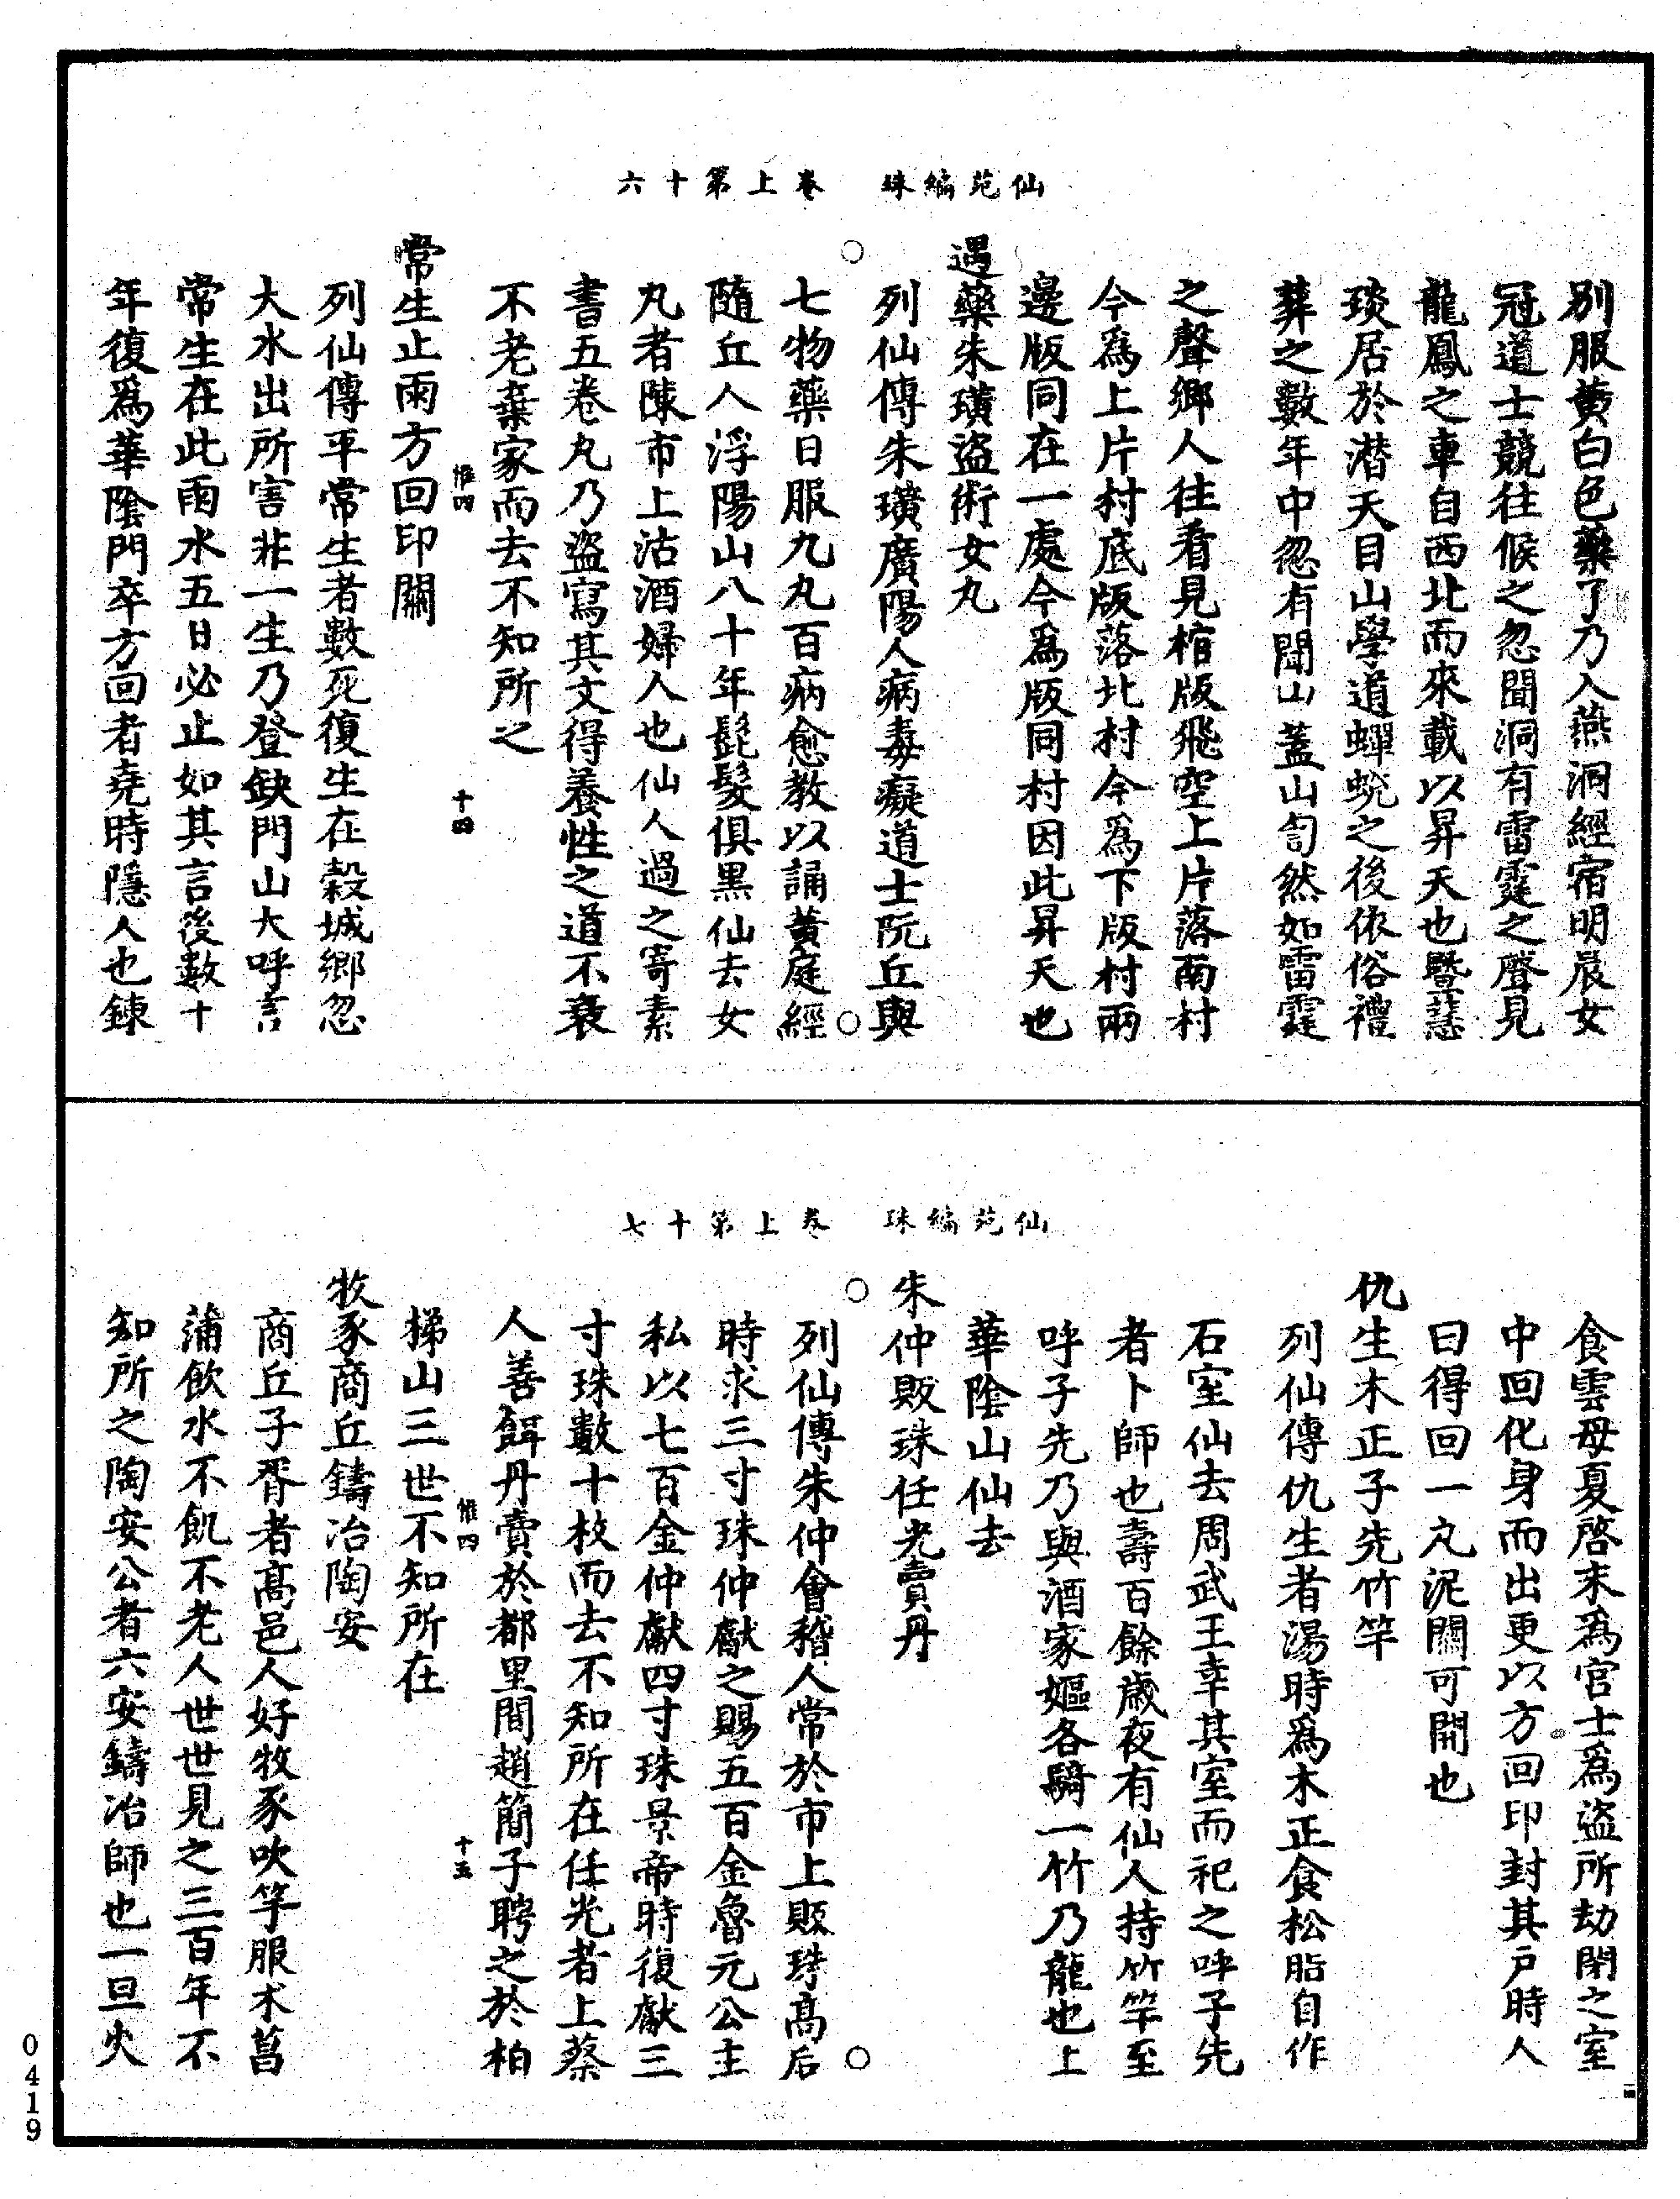 仙苑編珠　卷上第十六
別服黃白色藥了乃入燕洞經宿明晨女
冠道士競往候之忽聞洞有雷霆之聲見
龍鳳之車自西北而來載以昇天也暨慧
琰居於潛天目山學道蟬蛻之後依俗禮
葬之數年中忽有聞山蓋山訇然如雷霆
之聲鄉人往看見棺版飛空上片落南村
今爲上片村底版落北村今爲下版村兩
邊版同在一處今爲版同村因此昇天也
遇藥朱璜盜術女丸
列仙傳朱璜廣陽人病毒癡道士阮丘與
七物藥日服九丸百病愈教以誦黃庭經
隨丘入浮陽山八十年髭髮俱黑仙去女
丸者陳市上沽酒婦人也仙人過之寄素
書五卷丸乃盜寫其文得養性之道不衰
不老棄家而去不知所之
惟四　十四
常生止雨方回印關
列仙傳平常生者數死復生在穀城鄉忽
大水出所害非一生乃登缺門山大呼言
常生在此雨水五日必止如其言後數十
年復爲華陰門卒方回者堯時隱人也鍊
仙苑編珠　卷上第十七
食雲母夏啓末爲宦士爲盜所劫閉之室
中回化身而出更以方回印封其戶時人
曰得回一丸泥關可開也
仇生木正子先竹竿
列仙傳仇生者湯時爲木正食松脂自作
石室仙去周武王幸其室而祀之呼子先
者卜師也壽百餘歲夜有仙人持竹竿至
呼子先乃與酒家嫗各騎一竹乃龍也上
華陰山仙去
朱仲販珠任光賣丹
列仙傳朱仲會稽人常於市上販珠高后
時求三寸珠仲獻之賜五百金魯元公主
私以七百金仲獻四寸珠景帝時復獻三
寸珠數十枚而去不知所在任光者上蔡
人善餌丹賣於都里間趙簡子聘之於柏
梯山三世不知所在
惟四　十五
牧豕商丘鑄冶陶安
商丘子胥者高邑人好牧豕吹竽服朮菖
蒲飲水不飢不老人世世見之三百年不
知所之陶安公者六安鑄冶師也一旦火
0419